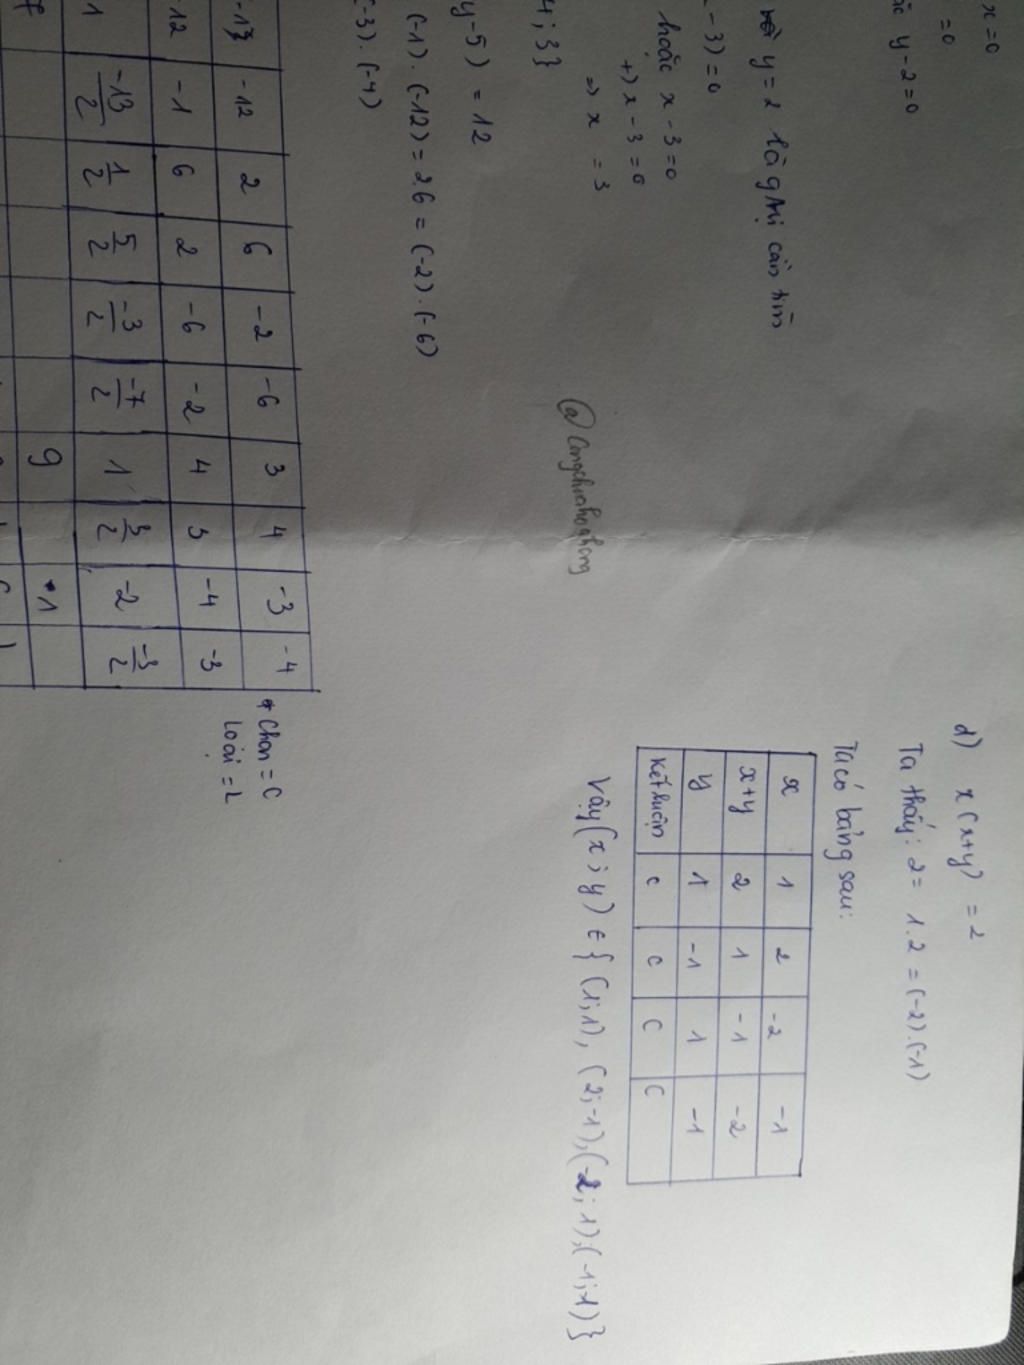 x=0
=0
y-2=0
y = 2 là gtrị cần tìm
-3)=0
hoặc x-3=0
+) x-3=0
=> x = 3
4; 3}
y-5) = 12
(-1).(-12) = 2.6 = (-2).(-6)
(-3).(-4)
-12 2 6 -2 -6 3 4 -3 -4
12 -1 6 2 -6 -2 4 3 -4 -3
1 -13/2 1/2 5/2 -3/2 -7/2 1 3/2 -2 -3/2
9 1
* Chọn = C
Loại = L
d) x(x+y) = 2
Ta thấy: 2 = 1.2 = (-2).(-1)
Ta có bảng sau:
x 1 2 -2 -1
x+y 2 1 -1 -2
y 1 -1 1 -1
Kết luận C C C C
Vậy (x;y) ∈ {(1;1), (2;-1), (-2;1); (-1;-1)}